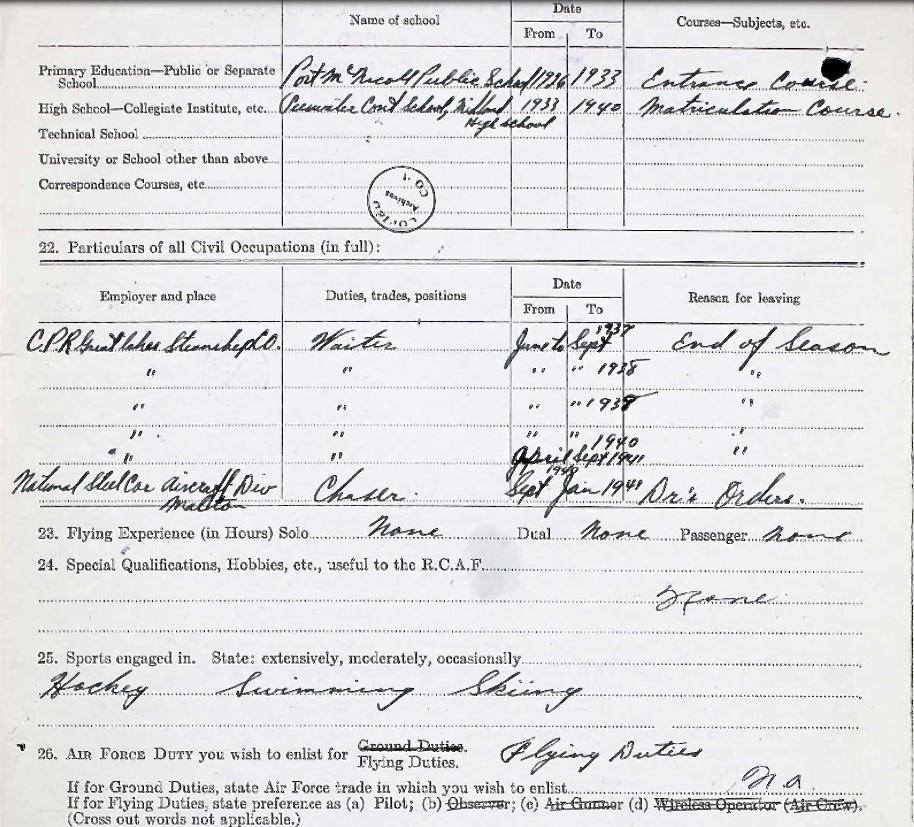 Date
Name of school Courses—Subjects, etc.
From To
Primary Education—Public or Separate
School Port McNicoll Public School 1926 1933 Entrance Course
High School—Collegiate Institute, etc. Cont School, Midland 1933 1940 Matriculation Course.
High School
Technical School
University or School other than above
Correspondence Courses, etc.
COPIED
Archives
CO-1
22. Particulars of all Civil Occupations (in full):
Date
Employer and place Duties, trades, positions Reason for leaving
From To
1937
C.P.R Great lakes Steamship Co. Waiter June to Sept End of Season
" " " " 1938 "
" " " " 1938 "
" " " " 1940 "
" " April Sept 1941 "
National Steel Car Aircraft Div Chaser. Sept 1940 Jan 1941 Dr's Orders.
Malton
23. Flying Experience (in Hours) Solo None Dual None Passenger None
24. Special Qualifications, Hobbies, etc., useful to the R.C.A.F.
None
25. Sports engaged in. State: extensively, moderately, occasionally
Hockey Swimming Skiing
26. AIR FORCE DUTY you wish to enlist for Ground Duties. Flying Duties
Flying Duties.
If for Ground Duties, state Air Force trade in which you wish to enlist n.a.
If for Flying Duties, state preference as (a) Pilot; (b) Observer; (c) Air Gunner (d) Wireless Operator (Air Crew).
(Cross out words not applicable.)